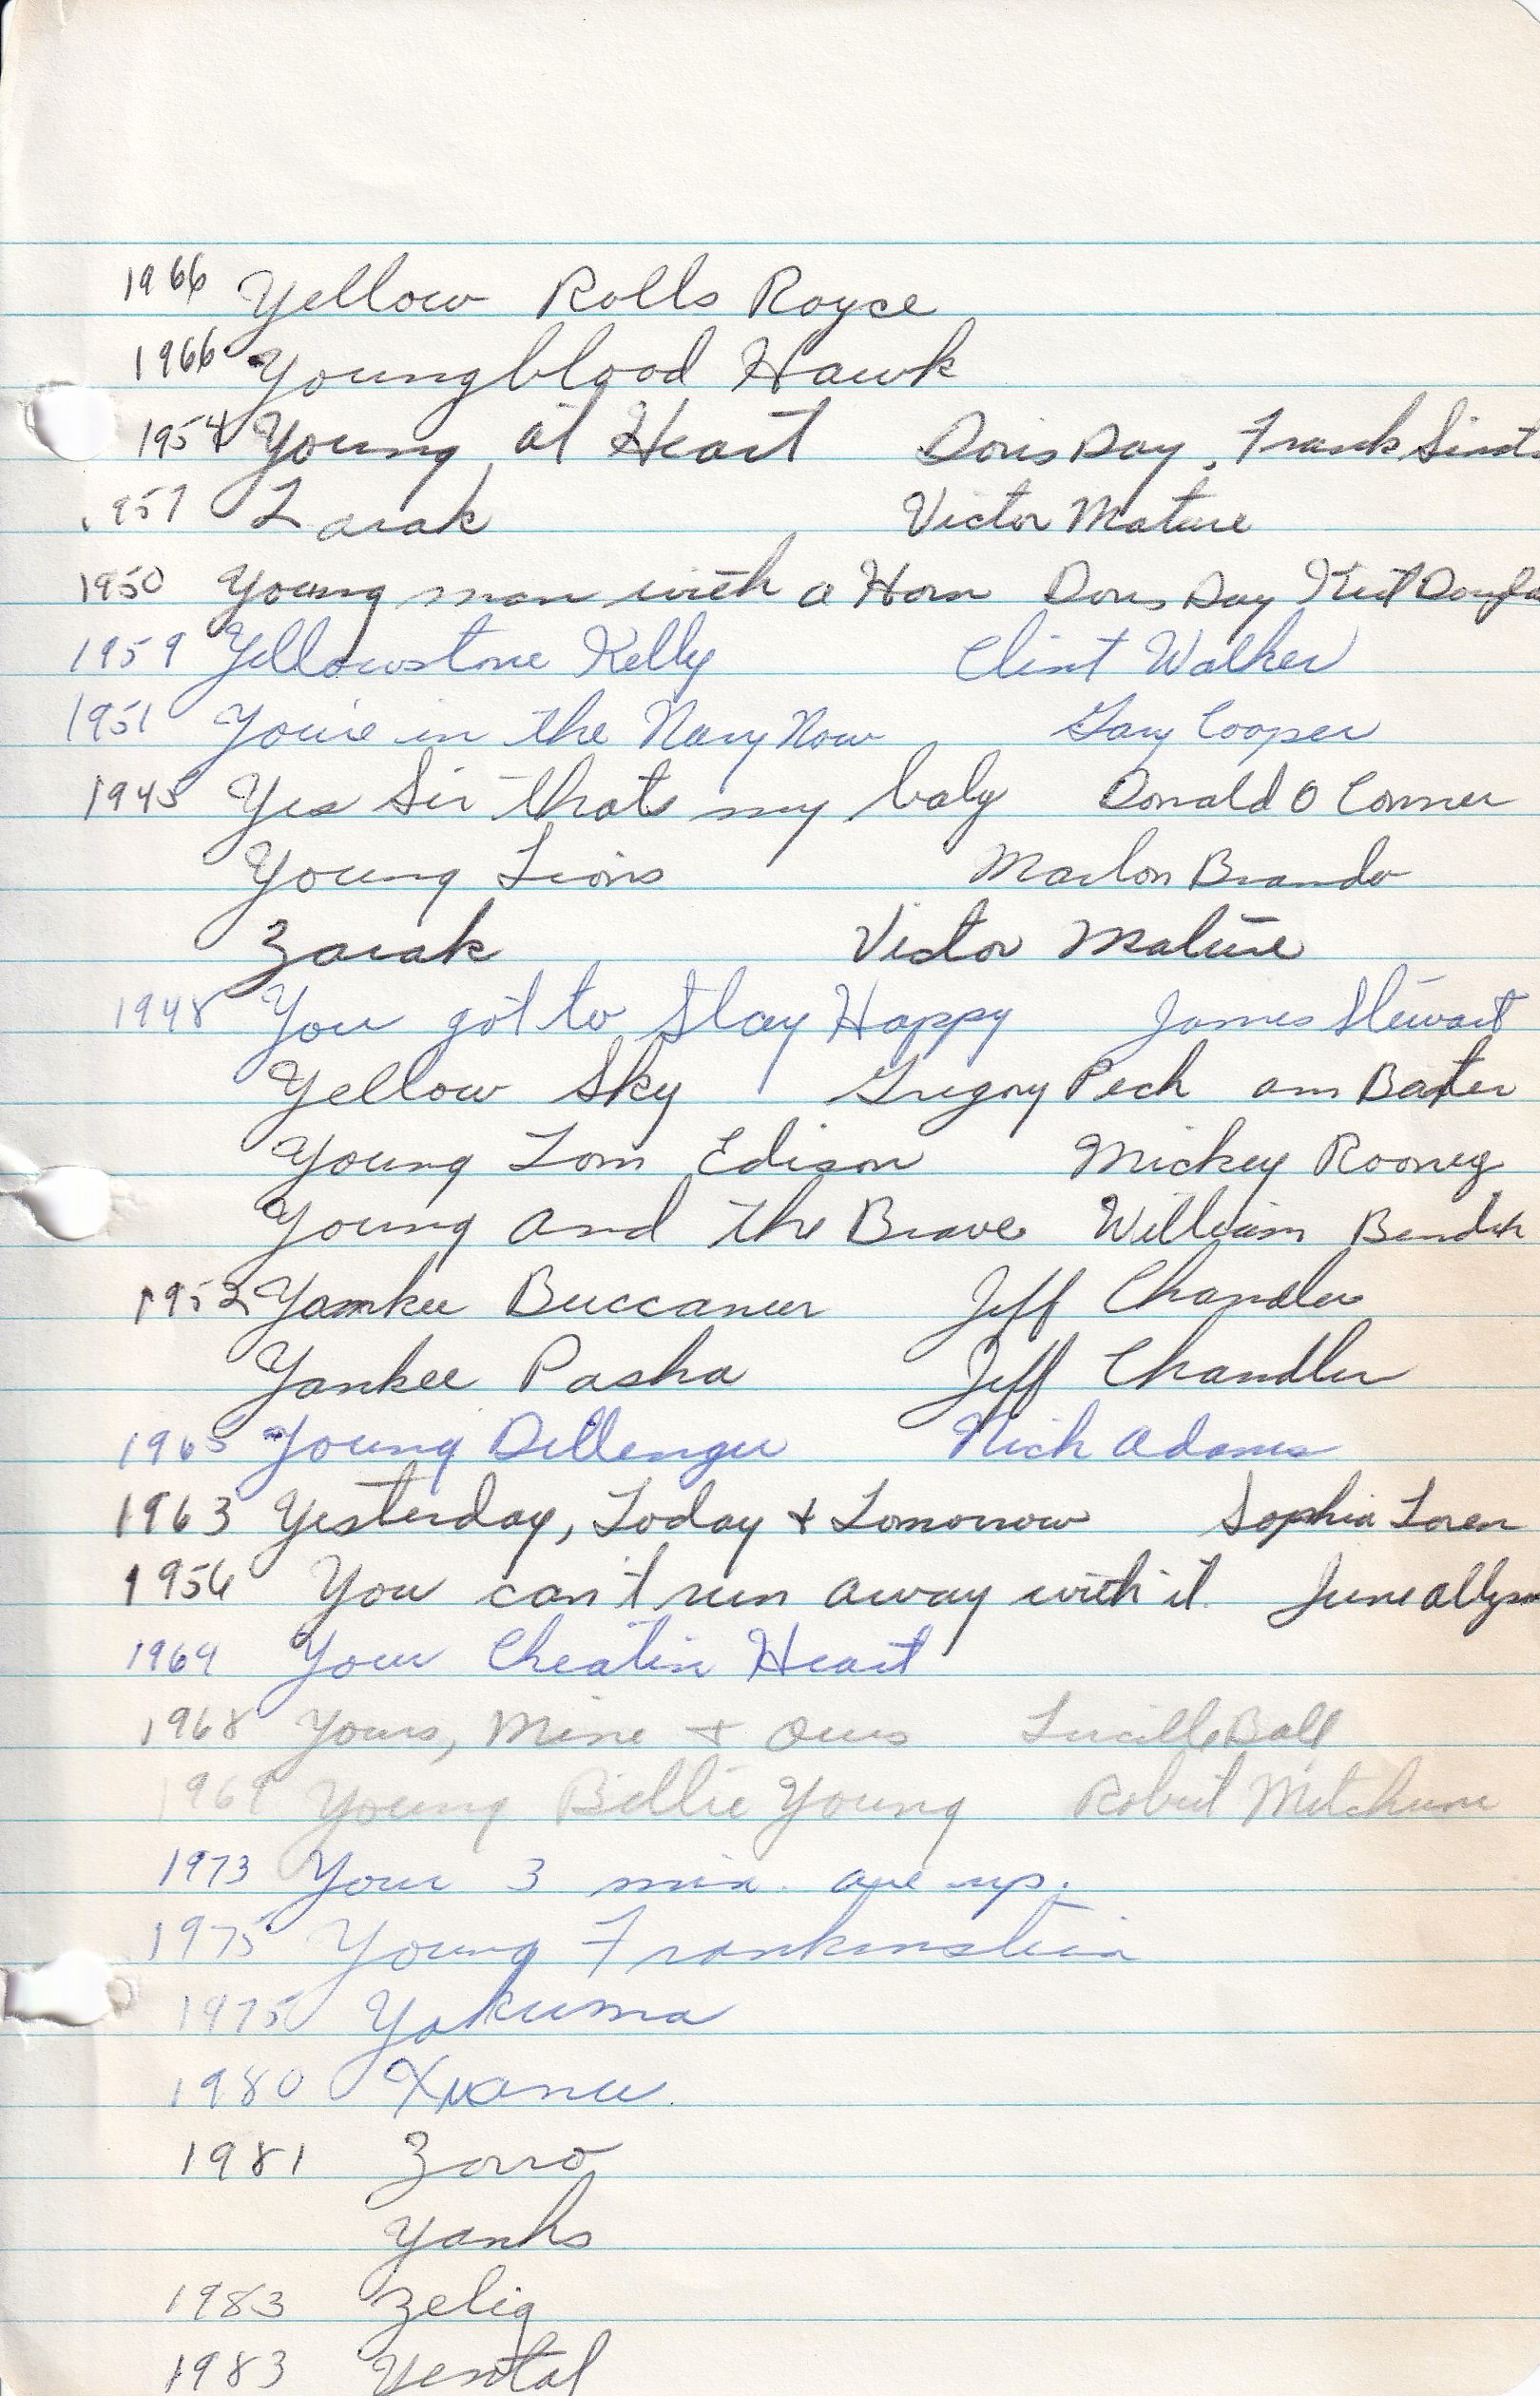 1966 Yellow Rolls Royce
1966 Youngblood Hawk
1954 Young at Heart Doris Day, Frank Sinat
1957 Zarak Victor Mature
1950 Young man with a Horn Doris Day Kirk Dougla
1959 Yellowstone Kelly Clint Walker
1951 You're in the Navy Now Gary Cooper
1945 Yes Sir thats my baby Donald O Conner
Young Lions Marlon Brando
Zarak Victor Mature
1948 You got to Stay Happy James Stewart
Yellow Sky Gregory Peck ann Baxter
Young Tom Edison Mickey Rooney
Young and the Brave William Bendix
1952 Yankee Buccaneer Jeff Chandler
Yankee Pasha Jeff Chandler
1965 Young Dillenger Nick Adams
1963 Yesterday, Today + Tomorrow Sophia Loren
1956 You can't run away with it June allyson
1964 Your Cheatin Heart
1968 Yours, Mine + Ours Lucille Ball
1969 Young Billie Young Robert Mitchum
1973 Your 3 min. are up.
1975 Young Frankinstein
1975 Yakuma
1980 Xuanu
1981 Zorro
Yanks
1983 Zelig
1983 Yental